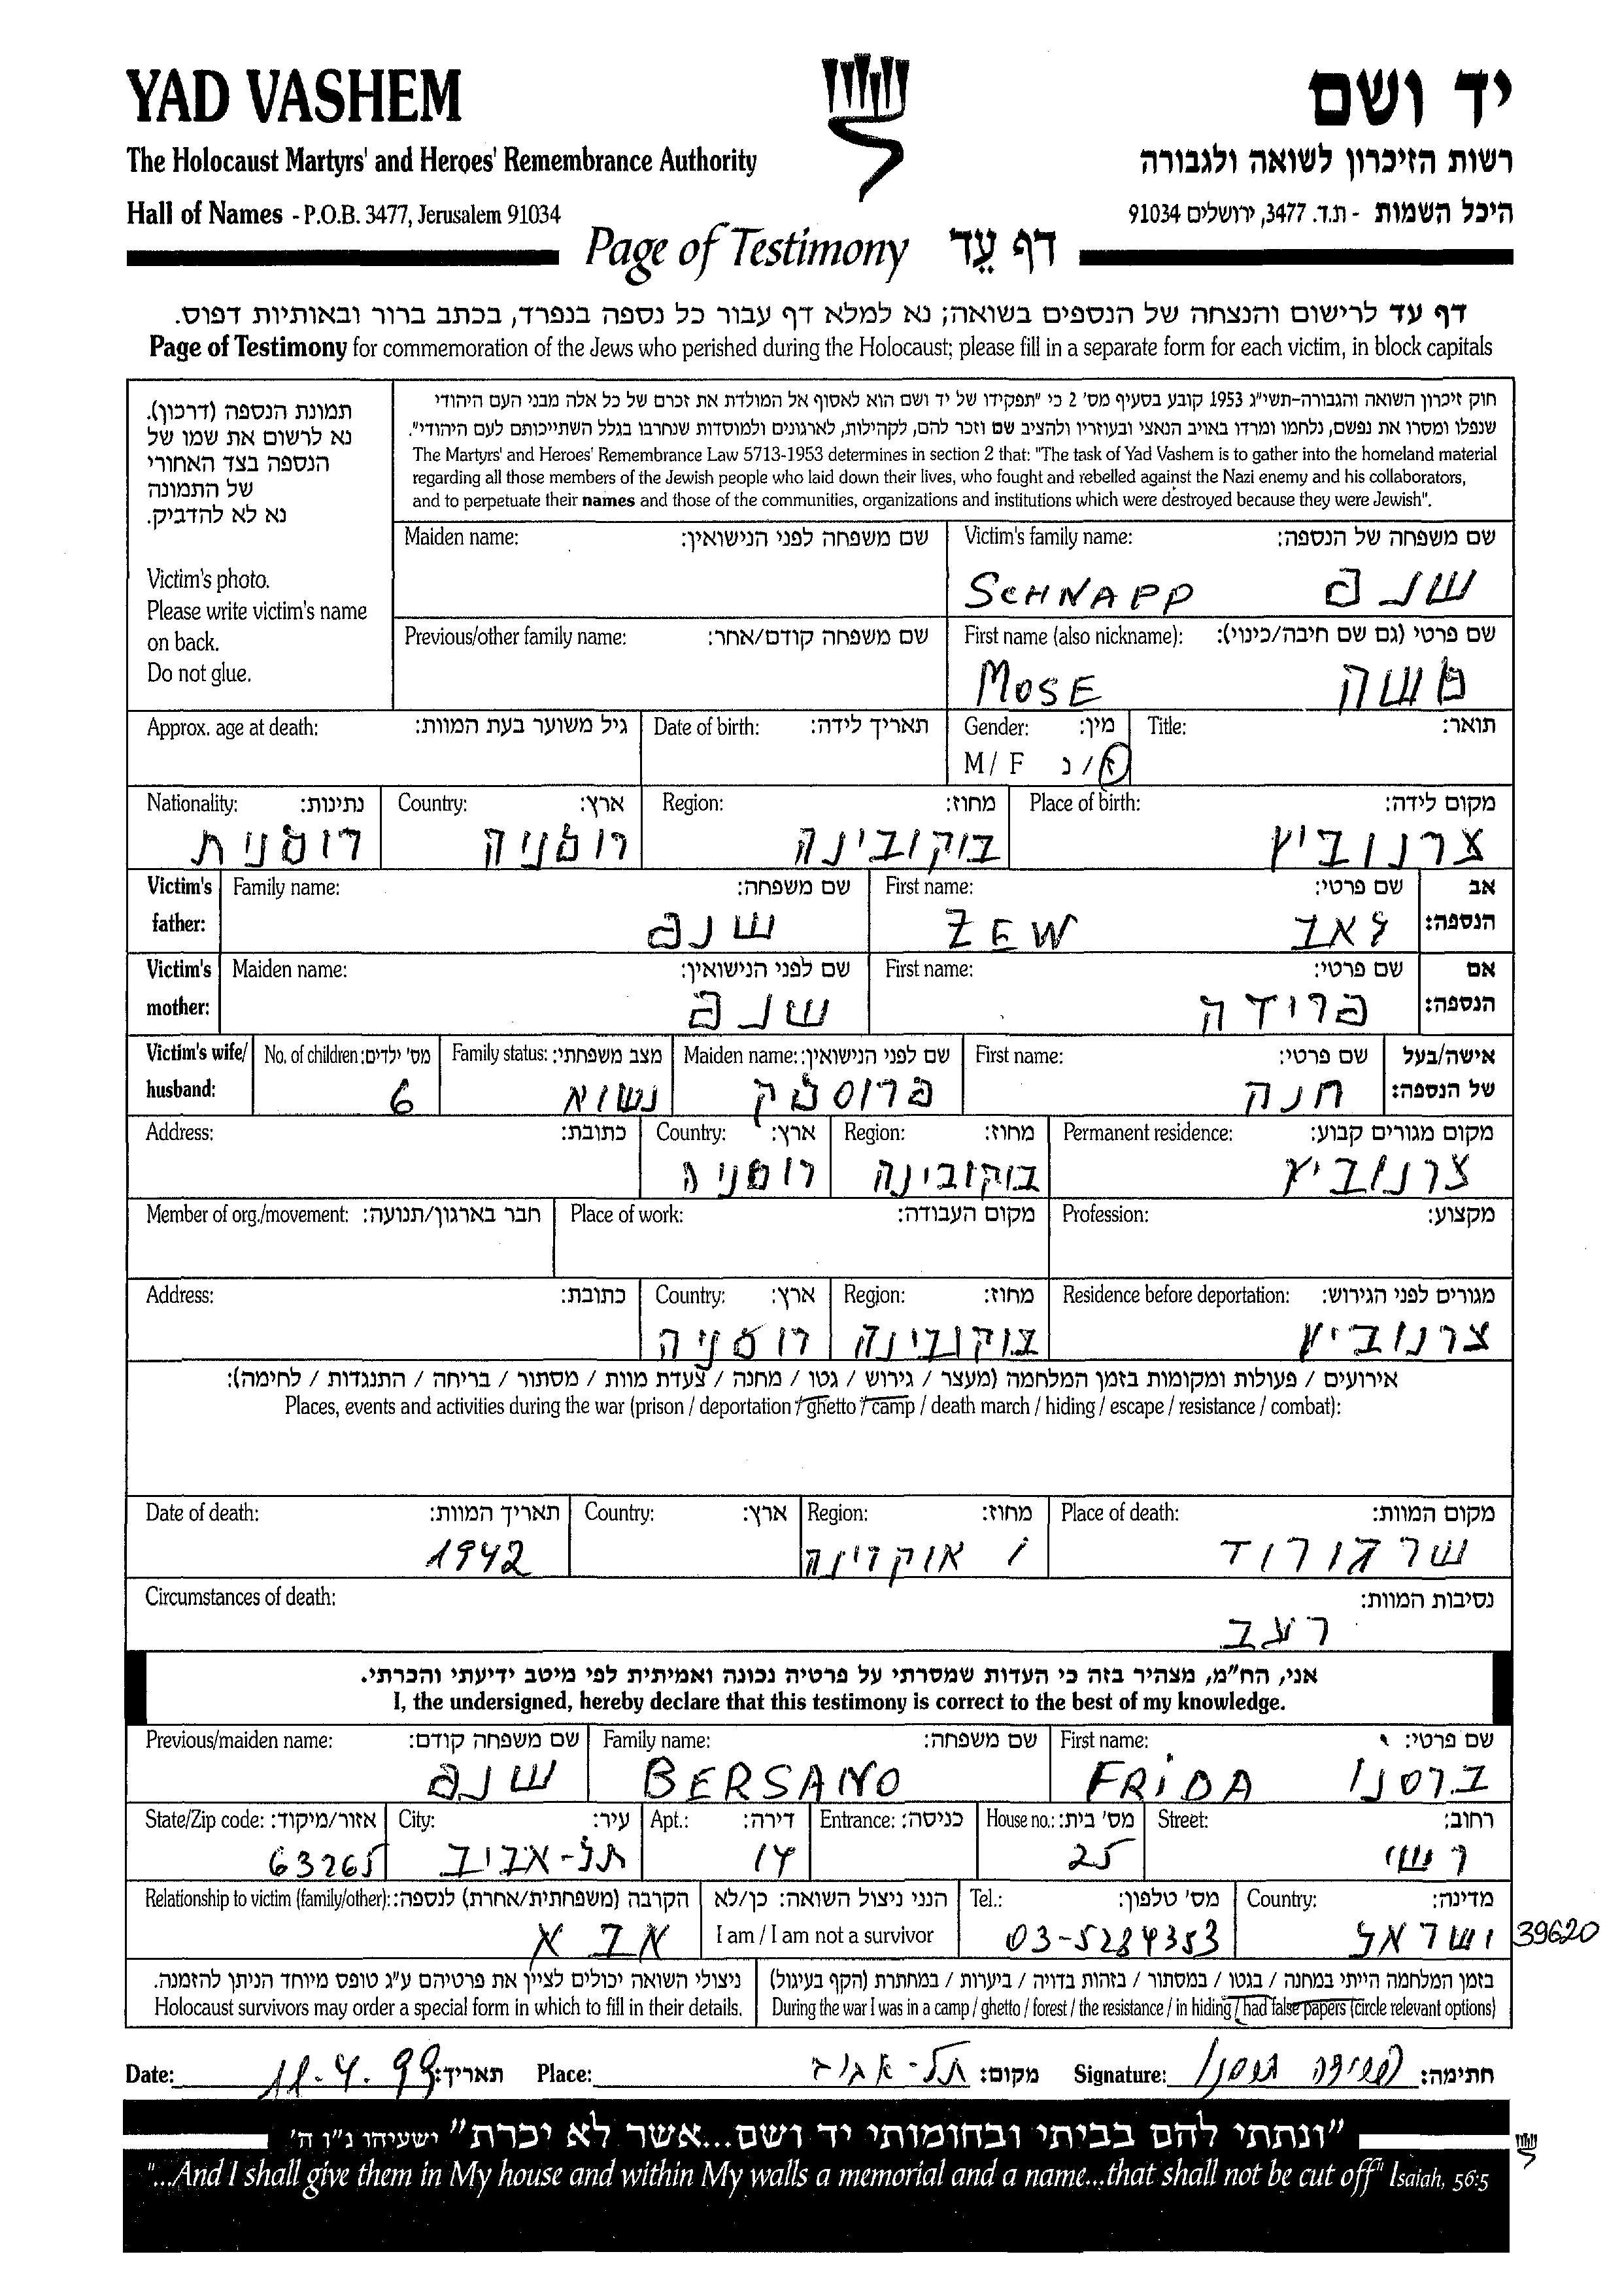 YAD VASHEM יד ושם
The Holocaust Martyrs' and Heroes' Remembrance Authority רשות הזיכרון לשואה ולגבורה
Hall of Names - P.O.B. 3477, Jerusalem 91034 היכל השמות - ת.ד. 3477, ירושלים 91034
Page of Testimony דף עֵד
דף עד לרישום והנצחה של הנספים בשואה; נא למלא דף עבור כל נספה בנפרד, בכתב ברור ובאותיות דפוס.
Page of Testimony for commemoration of the Jews who perished during the Holocaust; please fill in a separate form for each victim, in block capitals
תמונת הנספה (דרכון).
נא לרשום את שמו של
הנספה בצד האחורי
של התמונה
נא לא להדביק.
Victim's photo.
Please write victim's name
on back.
Do not glue.
חוק זיכרון השואה והגבורה-תשי"ג 1953 קובע בסעיף מס' 2 כי "תפקידו של יד ושם הוא לאסוף אל המולדת את זכרם של כל אלה מבני העם היהודי
שנפלו ומסרו את נפשם, נלחמו ומרדו באויב הנאצי ובעוזריו ולהציב שם וזכר להם, לקהילות, לארגונים ולמוסדות שנחרבו בגלל השתייכותם לעם היהודי".
The Martyrs' and Heroes' Remembrance Law 5713-1953 determines in section 2 that: "The task of Yad Vashem is to gather into the homeland material
regarding all those members of the Jewish people who laid down their lives, who fought and rebelled against the Nazi enemy and his collaborators,
and to perpetuate their names and those of the communities, organizations and institutions which were destroyed because they were Jewish".
Maiden name: שם משפחה לפני הנישואין: Victim's family name: שם משפחה של הנספה:
SCHNAPP שנפ
Previous/other family name: שם משפחה קודם/אחר: First name (also nickname): שם פרטי (גם שם חיבה/כינוי):
MOSE משה
Approx. age at death: גיל משוער בעת המוות: Date of birth: תאריך לידה: Gender: מין: Title: תואר:
M / F ז/נ
Nationality: נתינות: Country: ארץ: Region: מחוז: Place of birth: מקום לידה:
רומנית רומניה בוקובינה צרנוביץ
Victim's father: Family name: שם משפחה: First name: שם פרטי: אב הנספה:
שנפ ZEW זאב
Victim's mother: Maiden name: שם לפני הנישואין: First name: שם פרטי: אם הנספה:
שנפ פרידה
Victim's wife/ husband: No. of children: מס' ילדים: Family status: מצב משפחתי: Maiden name: שם לפני הנישואין: First name: שם פרטי: אישה/בעל של הנספה:
6 נשוא חנה
Address: כתובת: Country: ארץ: Region: מחוז: Permanent residence: מקום מגורים קבוע:
רומניה בוקובינה צרנוביץ
Member of org./movement: חבר בארגון/תנועה: Place of work: מקום העבודה: Profession: מקצוע:
Address: כתובת: Country: ארץ: Region: מחוז: Residence before deportation: מגורים לפני הגירוש:
רומניה בוקובינה צרנוביץ
אירועים / פעולות ומקומות בזמן המלחמה (מעצר / גירוש / גטו / מחנה / צעדת מוות / מסתור / בריחה / התנגדות / לחימה):
Places, events and activities during the war (prison / deportation / ghetto / camp / death march / hiding / escape / resistance / combat):
Date of death: תאריך המוות: Country: ארץ: Region: מחוז: Place of death: מקום המוות:
1942 אוקרינה שרגורוד
Circumstances of death: נסיבות המוות:
רעב
אני, הח"מ, מצהיר בזה כי העדות שמסרתי על פרטיה נכונה ואמיתית לפי מיטב ידיעתי והכרתי.
I, the undersigned, hereby declare that this testimony is correct to the best of my knowledge.
Previous/maiden name: שם משפחה קודם: Family name: שם משפחה: First name: שם פרטי:
שנפ BERSANO FRIDA ברסנו
State/Zip code: אזור/מיקוד: City: עיר: Apt.: דירה: Entrance: כניסה: House no.: מס' בית: Street: רחוב:
63265 תל-אביב 14 25 רשי
Relationship to victim (family/other): הקרבה (משפחתית/אחרת) לנספה: הנני ניצול השואה: כן/לא Tel.: מס' טלפון: Country: מדינה:
אבא I am / I am not a survivor 03-5284353 ישראל 39620
ניצולי השואה יכולים לציין את פרטיהם ע"ג טופס מיוחד הניתן להזמנה. בזמן המלחמה הייתי במחנה / בגטו / במסתור / בזהות בדויה / ביערות / במחתרת (הקף בעיגול)
Holocaust survivors may order a special form in which to fill in their details. During the war I was in a camp / ghetto / forest / the resistance / in hiding / had false papers (circle relevant options)
Date: 11.4.99 תאריך: Place: תל-אביב מקום: Signature: פרידה ברסנו חתימה:
"ונתתי להם בביתי ובחומותי יד ושם...אשר לא יכרת" ישעיהו נ"ו ה'
"...And I shall give them in My house and within My walls a memorial and a name...that shall not be cut off" Isaiah, 56:5